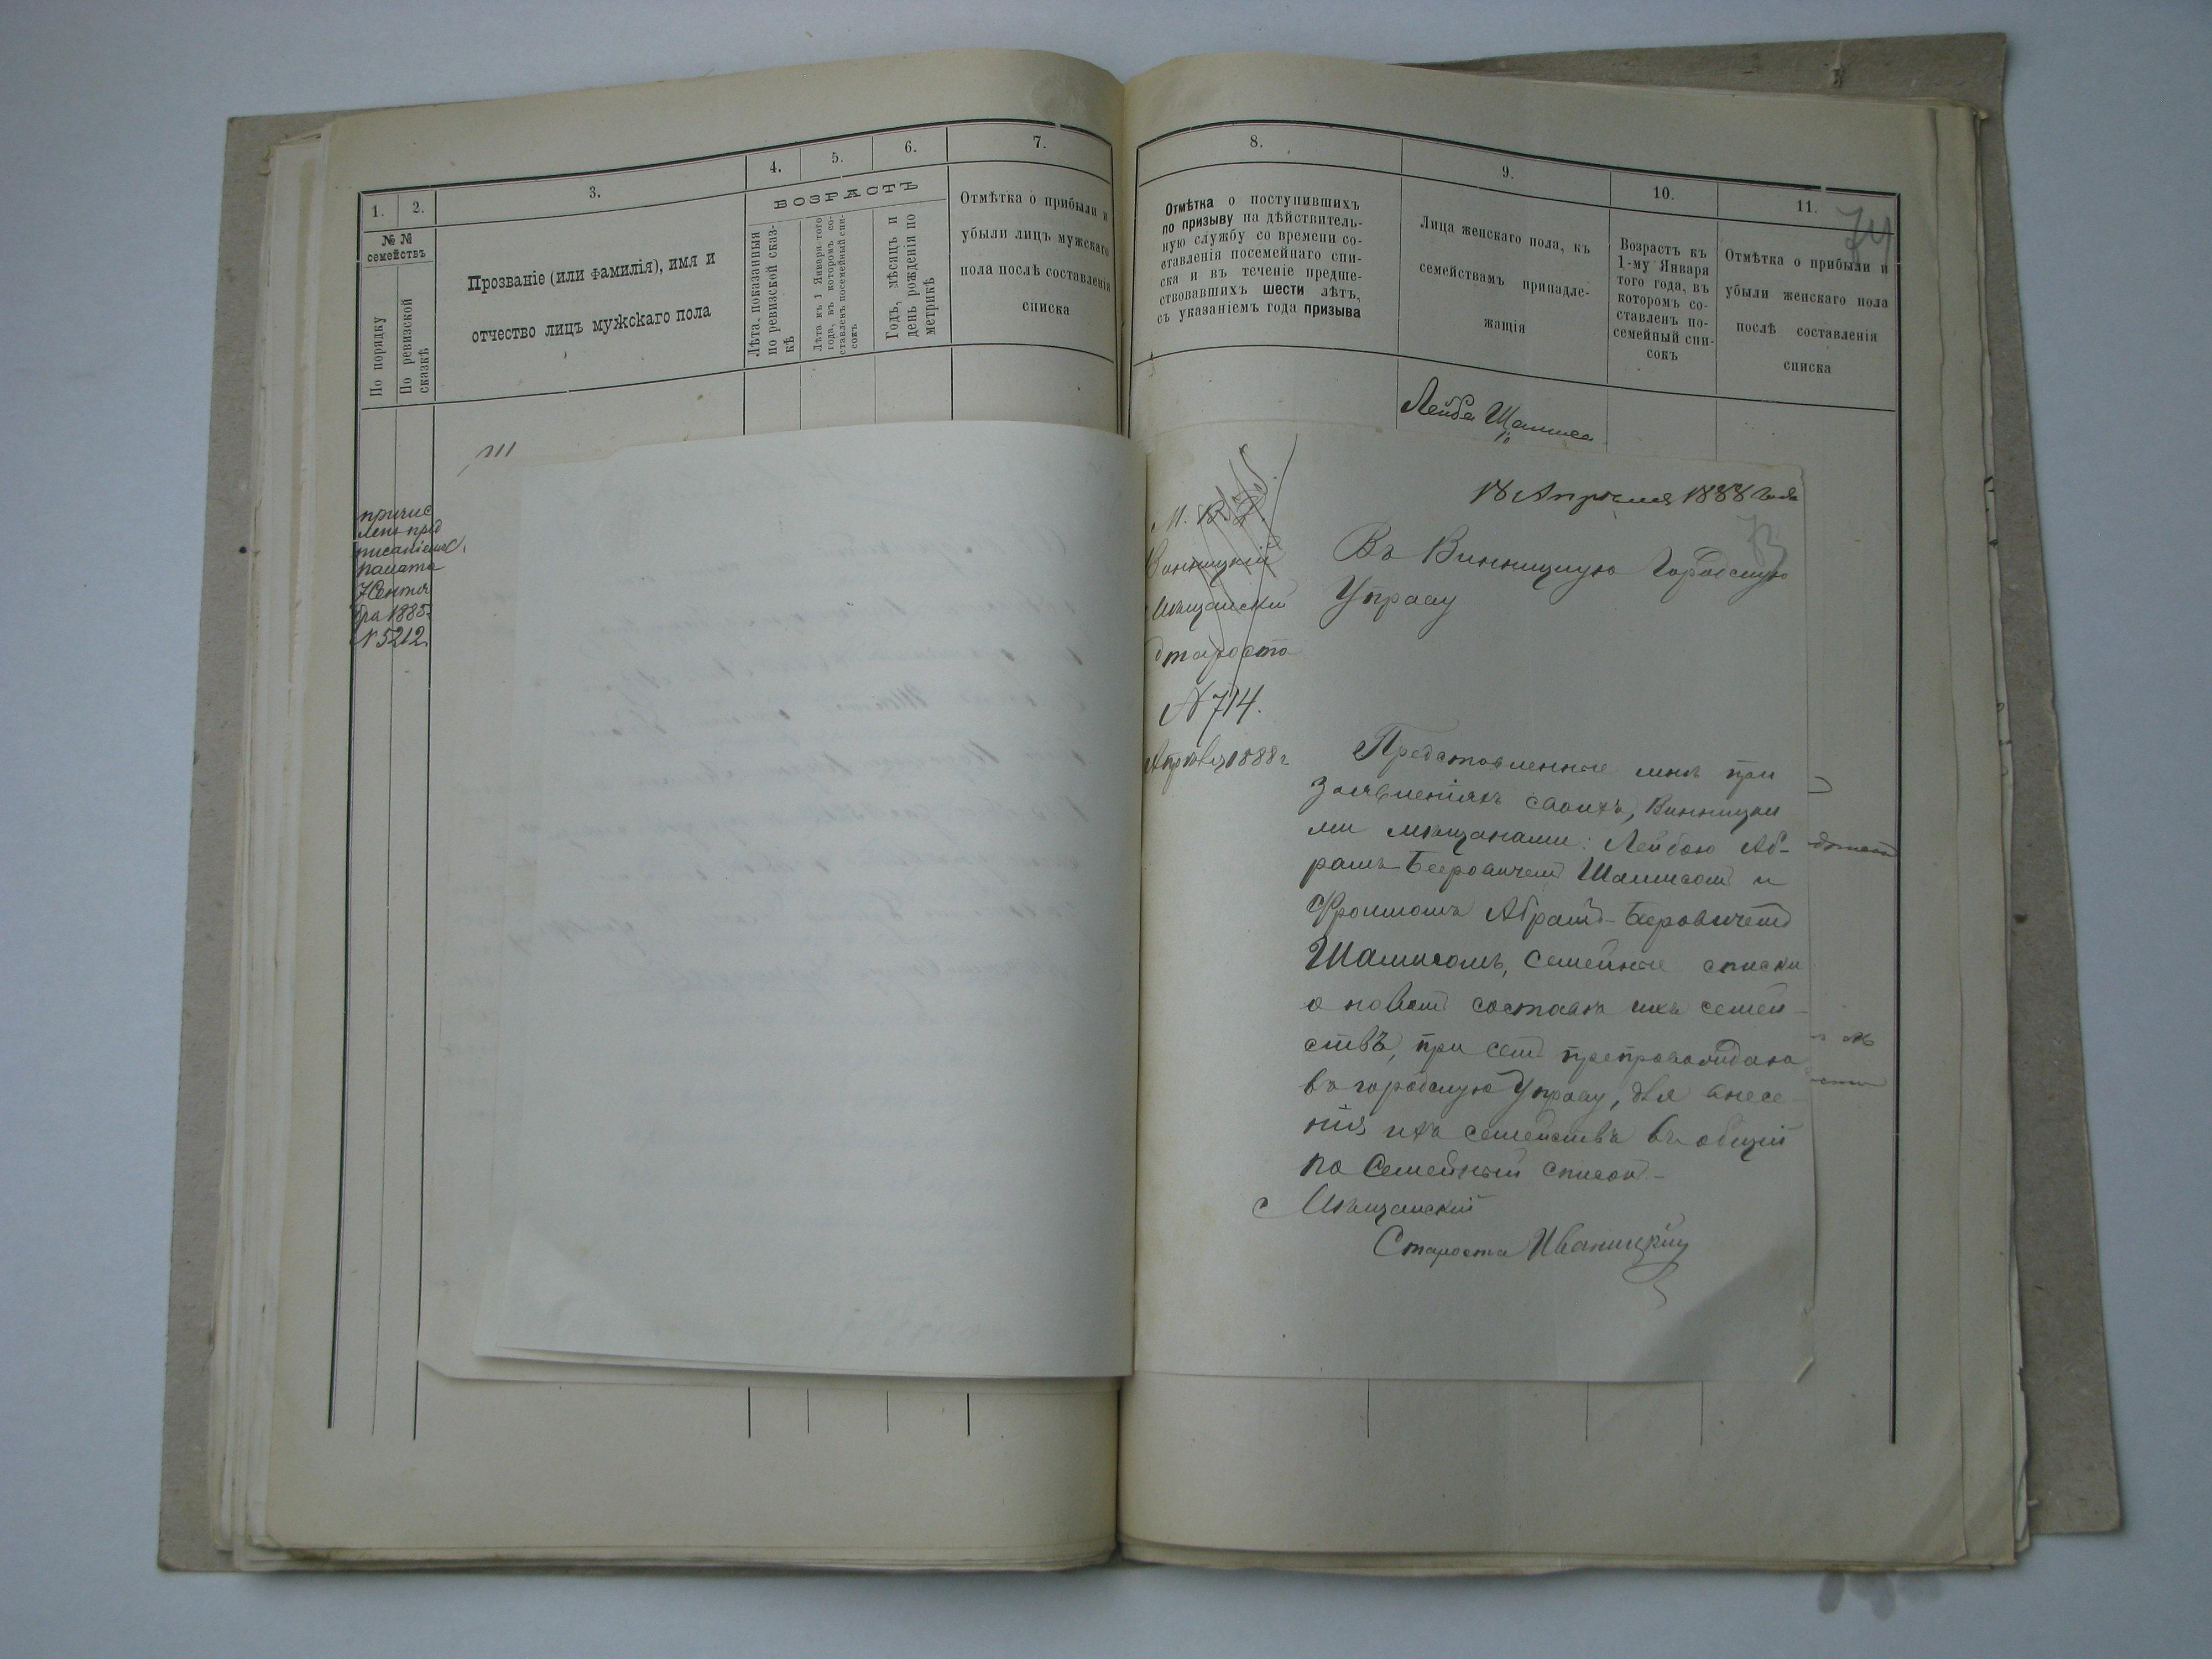 1.
2.
3.
4.
5.
6.
7.
№ №
семействъ
По порядку
По ревизской
сказкѣ
Прозваніе (или фамилія), имя и
отчество лицъ мужскаго пола
ВОЗРАСТЪ
Лѣта, показанныя
по ревизской сказ-
кѣ
Лѣта къ 1 Января того
года, въ которомъ со-
ставленъ посемейный спи-
сокъ
Годъ, мѣсяцъ и
день рожденія по
метрикѣ
Отмѣтка о прибыли и
убыли лицъ мужскаго
пола послѣ составленія
списка
причис
ленъ пред
писаніемъ
палаты
7 Сентя
бря 1885
N 5212.
8.
9.
10.
11.
74
Отмѣтка о поступившихъ
по призыву на дѣйствитель-
ную службу со времени со-
ставленія посемейнаго спи-
ска и въ теченіе предше-
ствовавшихъ шести лѣтъ,
съ указаніемъ года призыва
Лица женскаго пола, къ
семействамъ принадле-
жащія
Возрастъ къ
1-му Января
того года, въ
которомъ со-
ставленъ по-
семейный спи-
сокъ
Отмѣтка о прибыли и
убыли женскаго пола
послѣ составленія
списка
Лейба Шамиса
18 Апрѣля 1888 года
М. В. Д.
Винницкій
Мѣщанскій
Староста
N 714.
Апрѣля 1888 г
Въ Винницкую Городскую
Управу
Представленные мнѣ при
заявленіяхъ своихъ, Винницки
ми мѣщанами: Лейбою Аб-
рамъ-Беровичемъ Шамисомъ и
Фроимомъ Абрамъ-Беровичемъ
Шамисомъ, семейные списки
о новомъ составѣ ихъ семей-
ствъ, при семъ препровождаю
въ городскую Управу, для внесе-
нія ихъ семействъ въ общій
по Семейный списокъ.-
Мѣщанскій
Староста Иваницкій